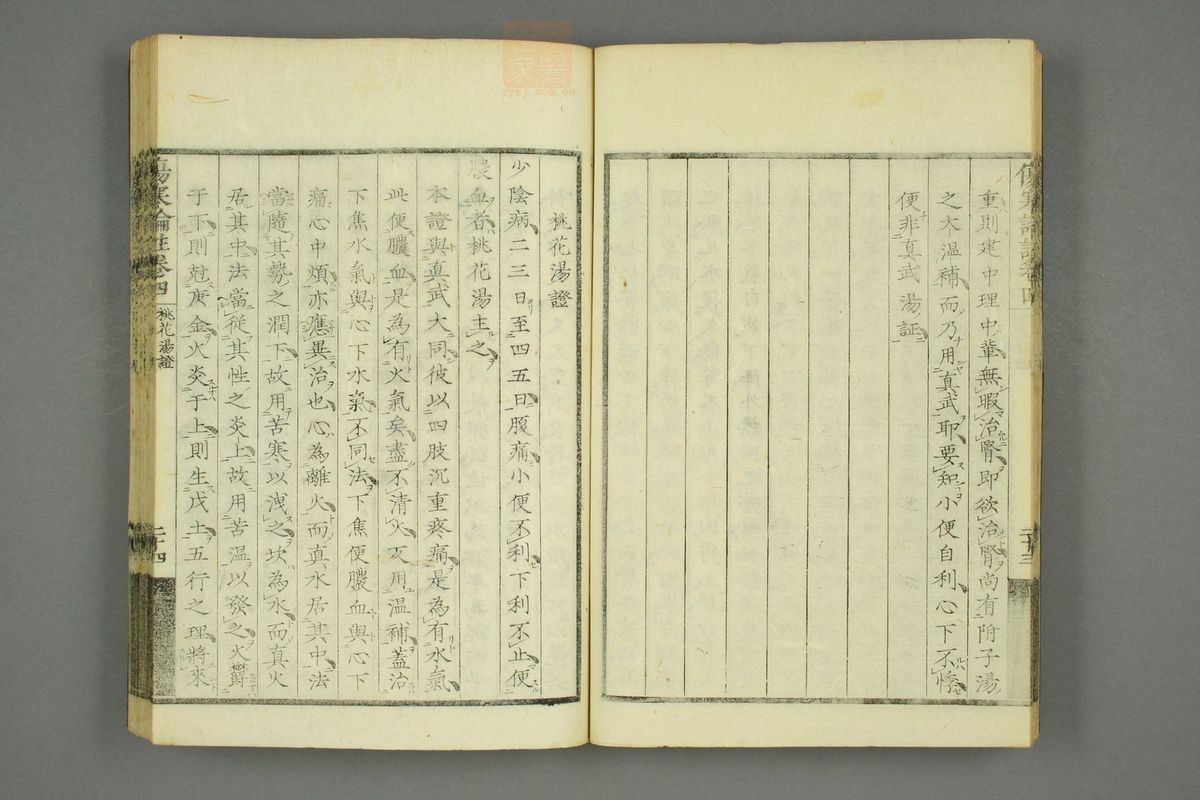 重則建中理中輩無暇治腎即欲治腎尚有附子湯
之大温補而乃用真武耶要知小便自利心下不悸
便非真武湯証
桃花湯證
少陰病二三日至四五日腹痛小便不利下利不止便
膿血者桃花湯主之
本證與真武大同彼以四肢沉重疼痛是為有水氣
此便膿血是為有火氣矣盡不清火反用温補蓋治
下焦水氣與心下水氣不同法下焦便膿血與心下
痛心中煩亦應異治也心為離火而真水居其中法
當隨其勢之潤下故用苦寒以洩之坎為水而真火
居其中法當從其性之炎上故用苦温以發之火鬱
于下則尅庚金火炎于上則生戊土五行之理將來
傷寒論註卷四
桃花湯證
二十四
二十三
醫家
zyoj.com.cn